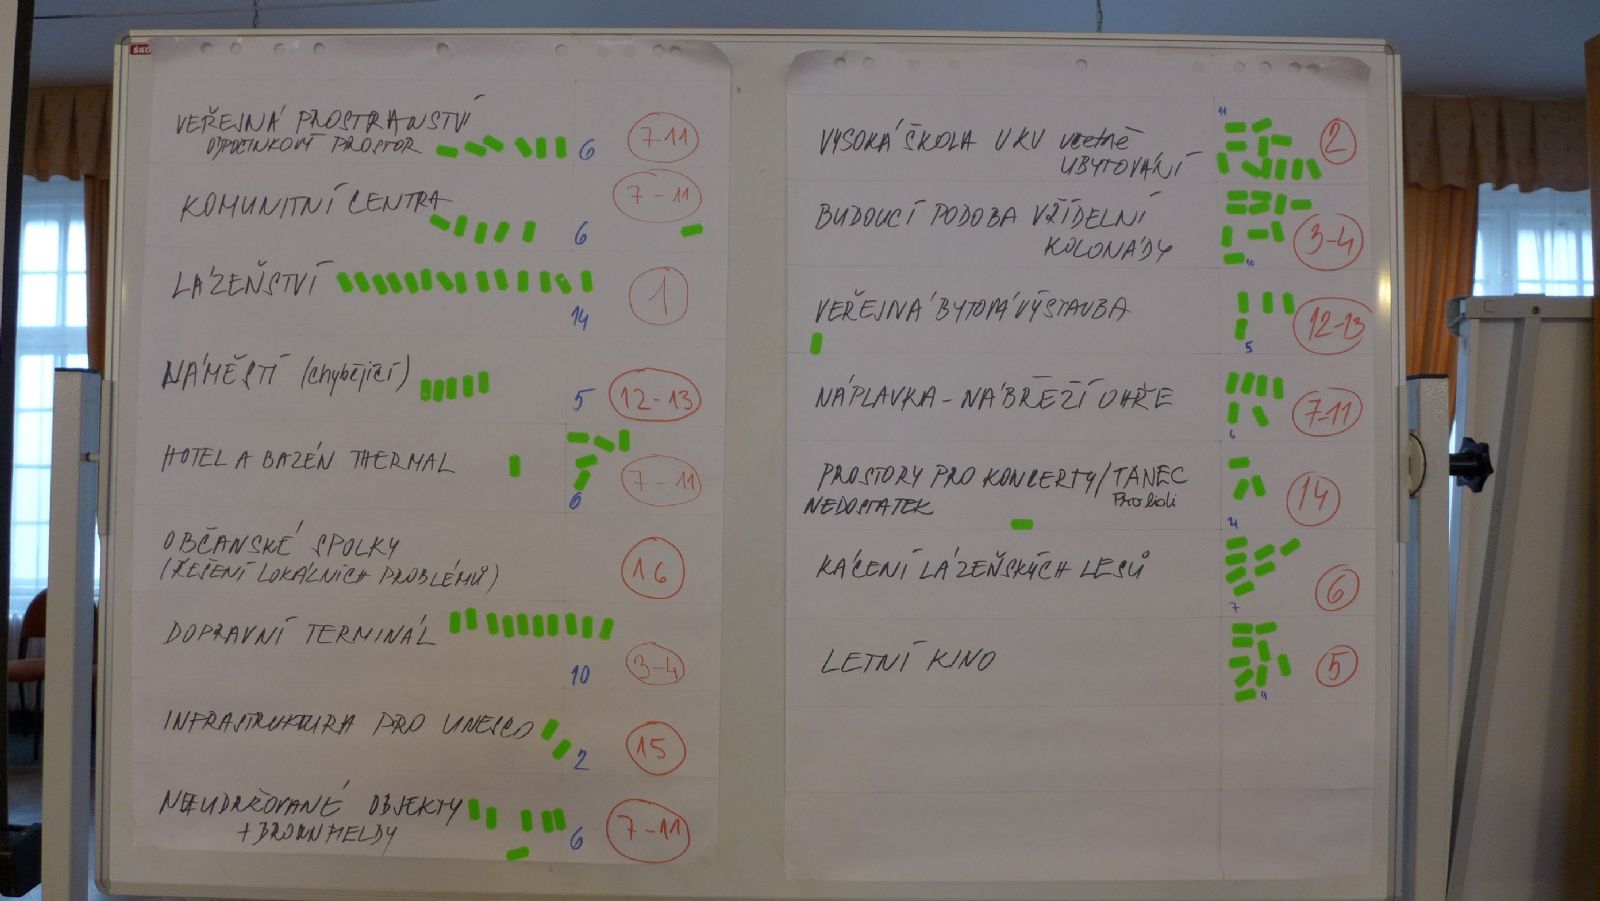 ŠKO
VEŘEJNÁ PROSTRANSTVÍ
ODPOČINKOVÝ PROSTOR 6 7-11
KOMUNITNÍ CENTRA
6 7-11
LÁZEŇSTVÍ 1
14
NÁMĚSTÍ (chybějící) 5 12-13
HOTEL A BAZÉN THERMAL 7-11
6
OBČANSKÉ SPOLKY
(ŘEŠENÍ LOKÁLNÍCH PROBLÉMŮ) 16
DOPRAVNÍ TERMINÁL
10 3-4
INFRASTRUKTURA PRO UNESCO
2 15
NEUDRŽOVANÉ OBJEKTY
+ BROWNFIELDY 6 7-11
11
VYSOKÁ ŠKOLA V KV včetně 2
UBYTOVÁNÍ
BUDOUCÍ PODOBA VŘÍDELNÍ
KOLONÁDY 10 3-4
VEŘEJNÁ BYTOVÁ VÝSTAVBA 12-13
5
NÁPLAVKA - NÁBŘEŽÍ OHŘE 7-11
6
PROSTORY PRO KONCERTY/TANEC
NEDOSTATEK Pro lidi 14
4
KÁCENÍ LÁZEŇSKÝCH LESŮ 6
7
LETNÍ KINO 5
9